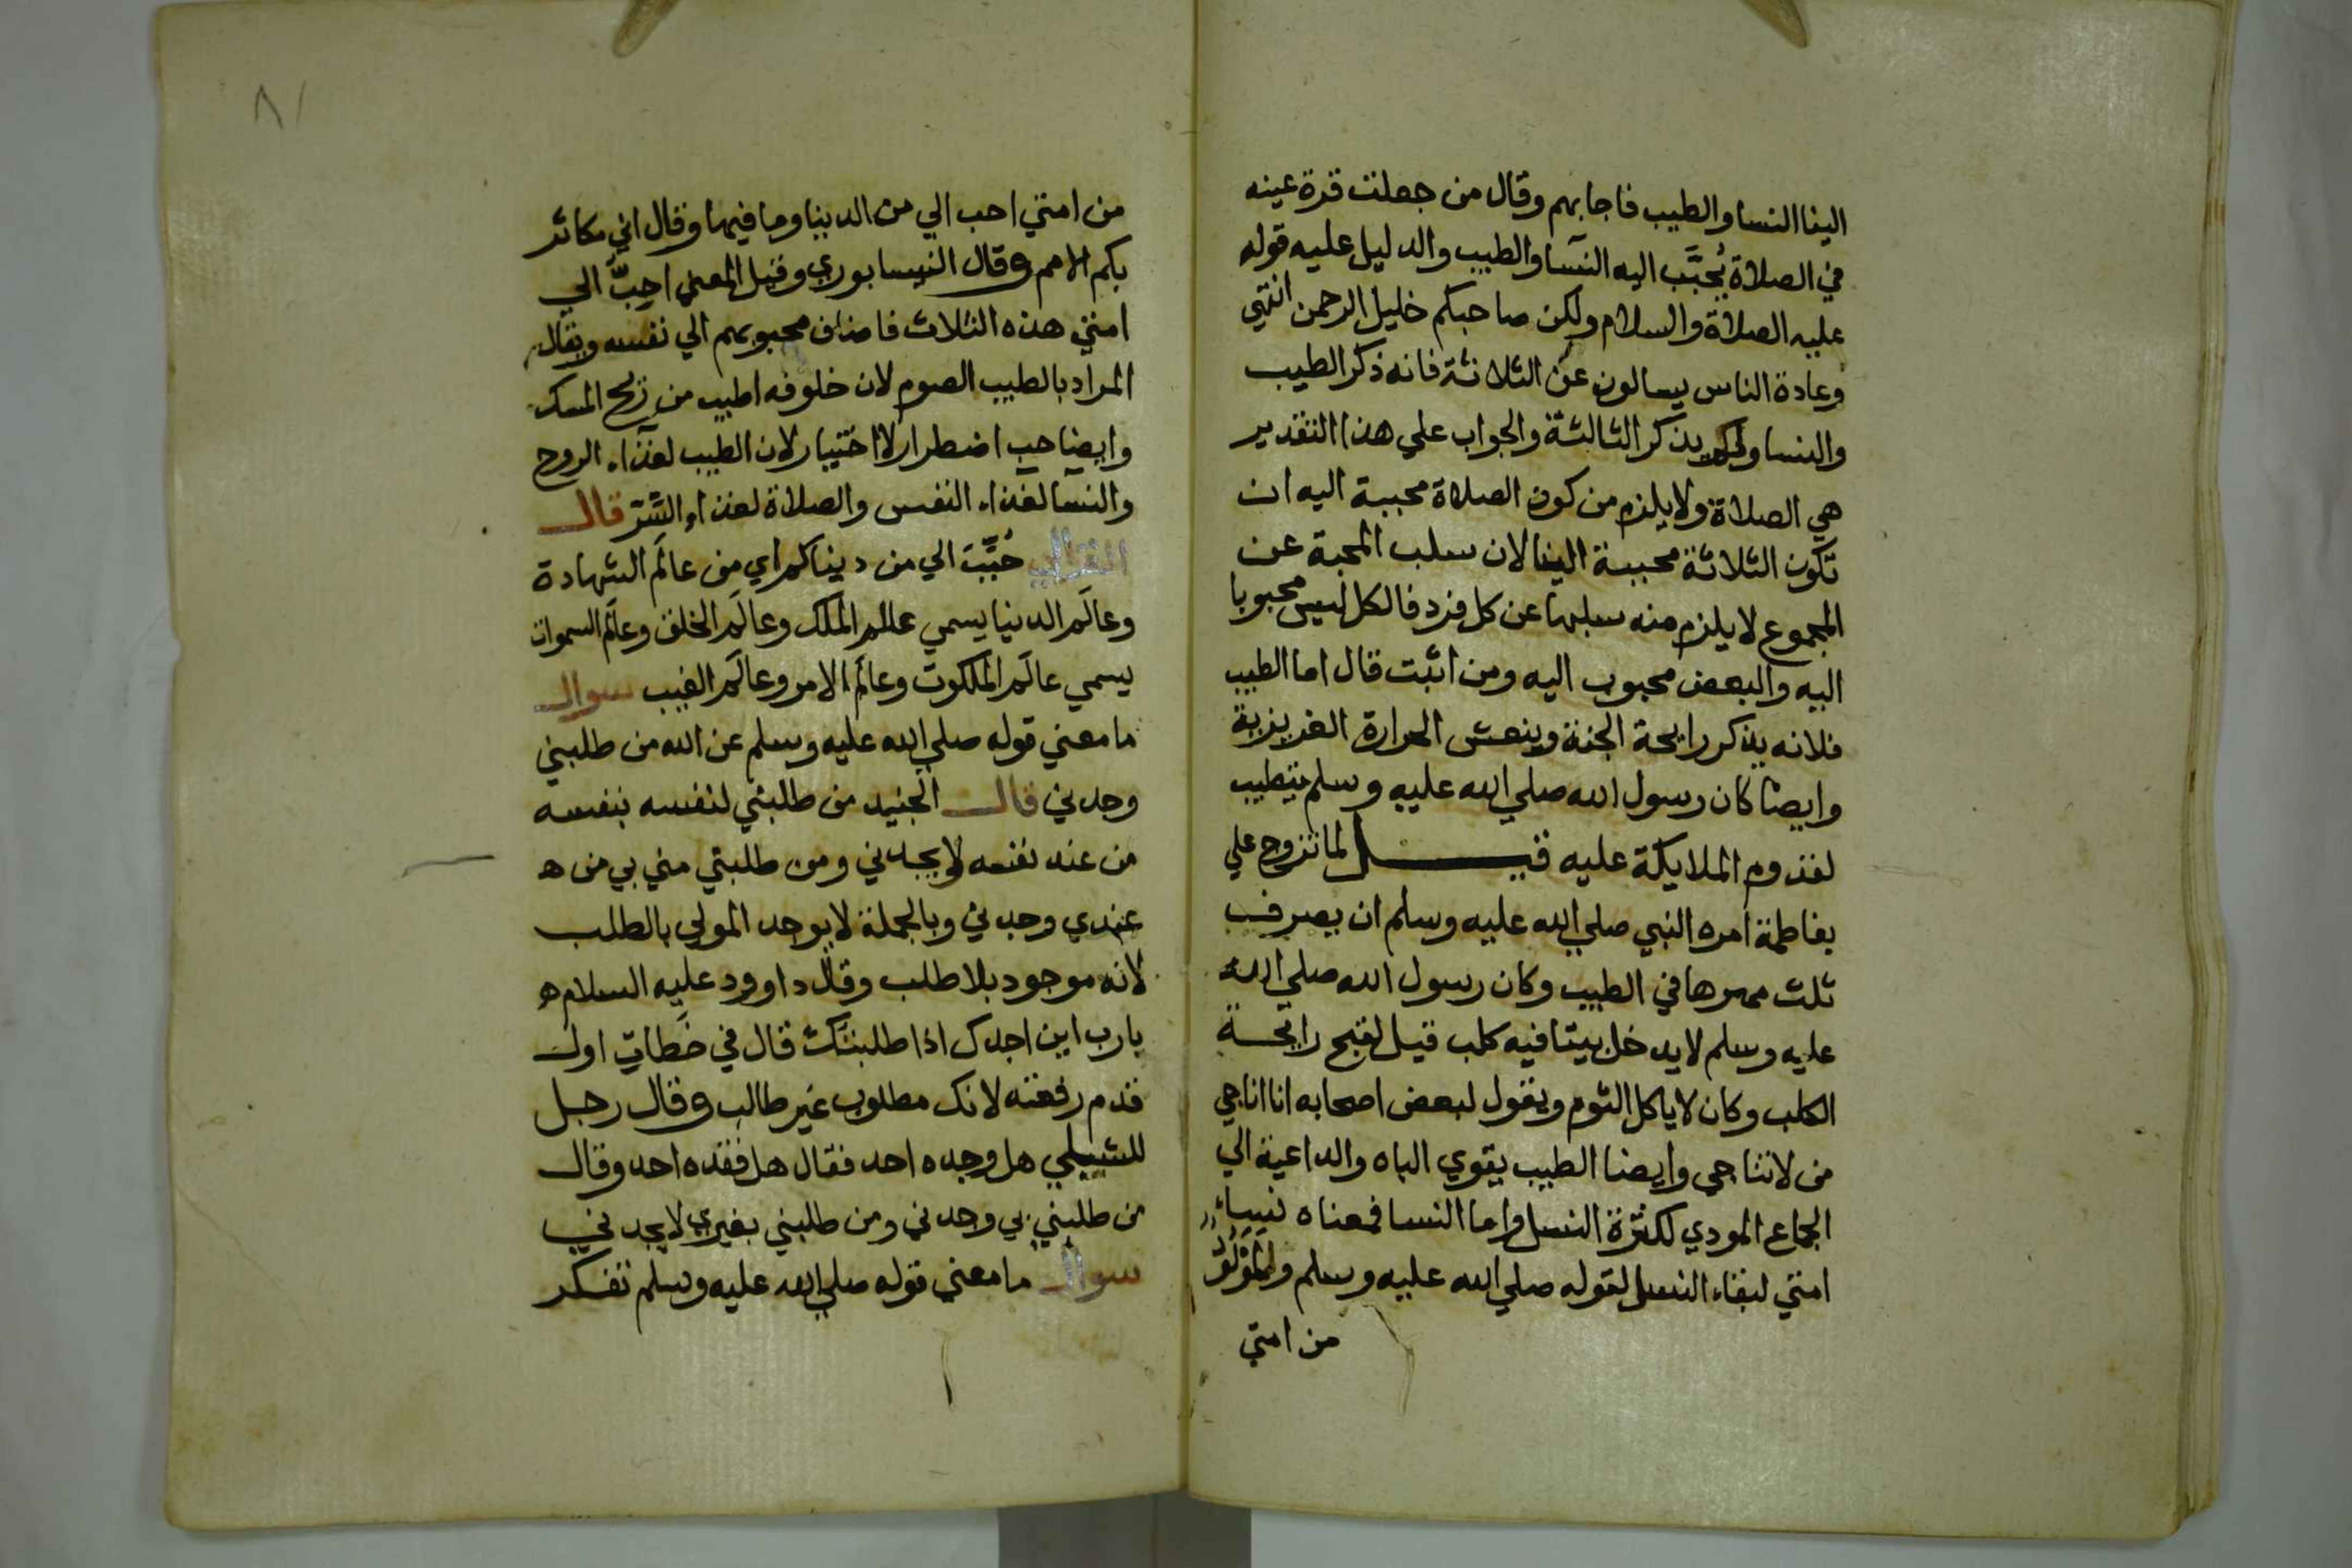 الينا النسا والطيب فاجابهم وقال من جعلت قرة عينه
في الصلاة يُحبَّب اليه النسآ والطيب والدليل عليه قوله
عليه الصلاة والسلام ولكن صاحبكم خليل الرحمن انتهي
وعادة الناس يسالون عن الثلاثة فانه ذكر الطيب
والنسا ولم يذكر الثالثة والجواب علي هذا التقدير
هي الصلاة ولا يلزم من كون الصلاة محببة اليه ان
تكون الثلاثة محببة الينا لان سلب المحبة عن
المجموع لا يلزم منه سلبها عن كل فرد فالكل ليس محبوبا
اليه والبعض محبوب اليه ومن اثبت قال اما الطيب
فلانه يذكر رايحة الجنة وينعش الحرارة الغريزية
وايضا كان رسول الله صلي الله عليه وسلم يتطيب
لقدوم الملايكة عليه قيل لما تزوج علي
بفاطمة امره النبي صلي الله عليه وسلم ان يصرف
ثلث مهرها في الطيب وكان رسول الله صلي الله
عليه وسلم لا يدخل بيتا فيه كلب قيل لقبح رايحة
الكلب وكان لا ياكل الثوم ويقول لبعض اصحابه انا اناجي
من لا تناجي وايضا الطيب يقوي الباه والداعية الي
الجماع المودي لكثرة النسل واما النسا فمعناه نساء
امتي لبقاء النسل لقوله صلي الله عليه وسلم ولمولود
من امتي
٨١
من امتي احب الي من الدنيا وما فيها وقال اني مكاثر
بكم الامم وقال النيسابوري وقيل المعني احبّ الي
امتي هذه الثلاث فاضاف محبوبهم الي نفسه ويقال
المراد بالطيب الصوم لان خلوفه اطيب من ريح المسك
وايضا حب اضطرار لا اختيار لان الطيب لغذآء الروح
والنسآ لغذاء النفس والصلاة لغذاء السّر قال
الغزالي حُبِّبَ الي من دنياكم اي من عالَم الشهادة
وعالَم الدنيا يسمي عالم الملك وعالَم الخلق وعالَم السموات
يسمي عالَم الملكوت وعالَم الامر وعالَم الغيب سوال
ما معني قوله صلي الله عليه وسلم عن الله من طلبني
وجدني قال الجنيد من طلبني لنفسه بنفسه
من عند نفسه لا يجدني ومن طلبني مني بي من ه
عندي وجدني وبالجملة لا يوجد المولي بالطلب
لانه موجود بلا طلب وقال داوود عليه السلام ه
يارب اين اجدك اذا طلبتك قال في خَطاتِ اول
قدم رفعته لانك مطلوب غير طالب وقال رجل
للشبلي هل وجده احد فقال هل فقده احد وقال
من طلبني بي وجدني ومن طلبني بغيري لا يجدني
سوال ما معني قوله صلي الله عليه وسلم تفكر